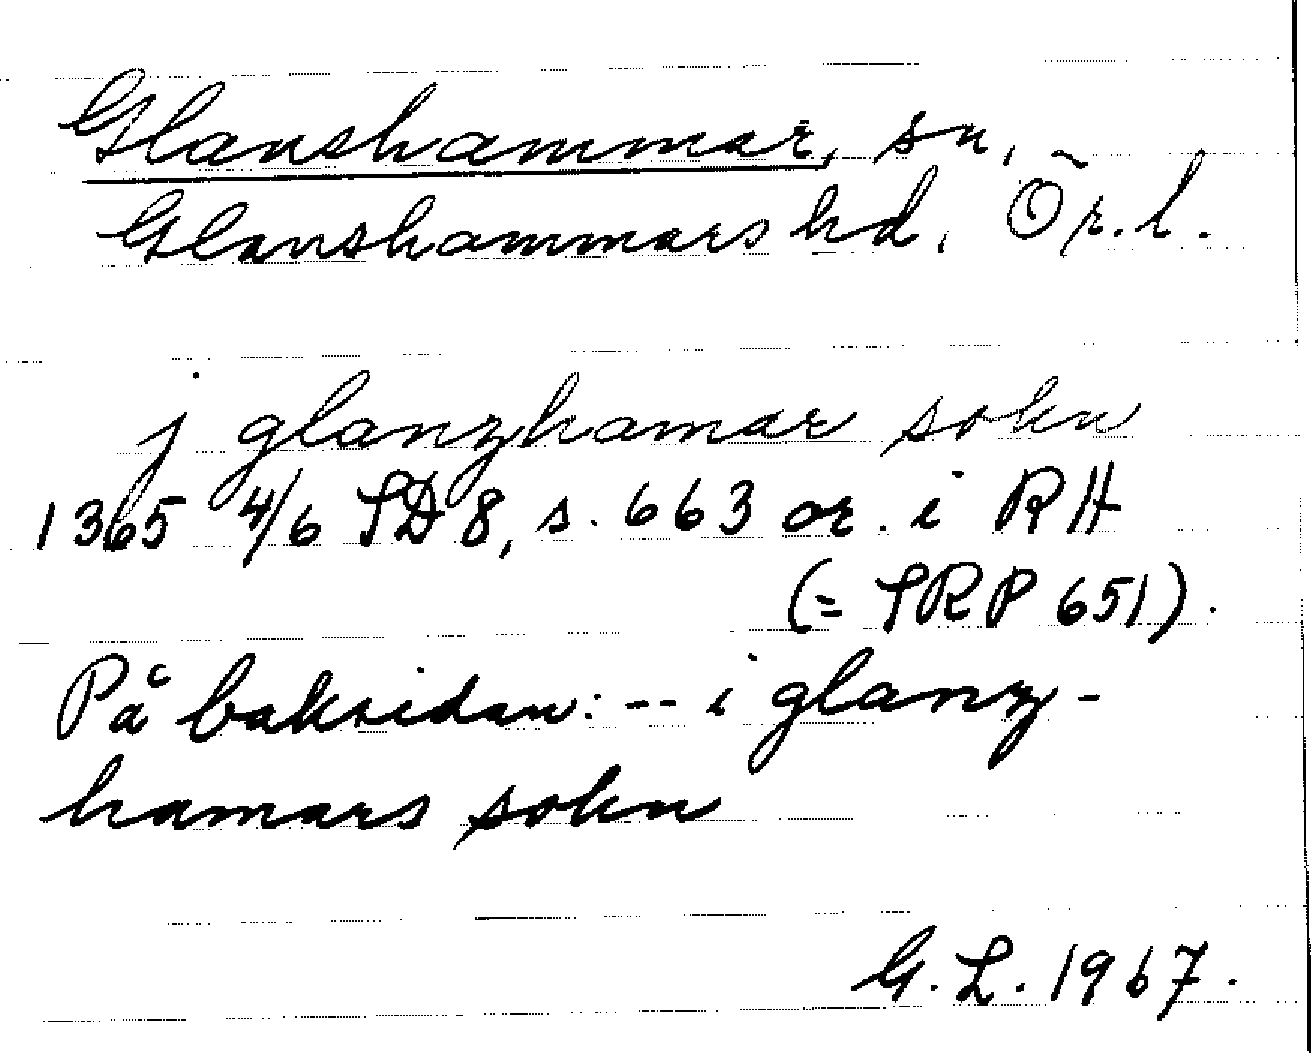 Glanshammar, sn,
Glanshammars hd, Ör. l.
j glanzhamar sokn
1365 4/6 SD 8, s. 663 or. i RH
(= SRP 651).
På baksidan: -- i glanz-
hamars sokn
G. L. 1967.